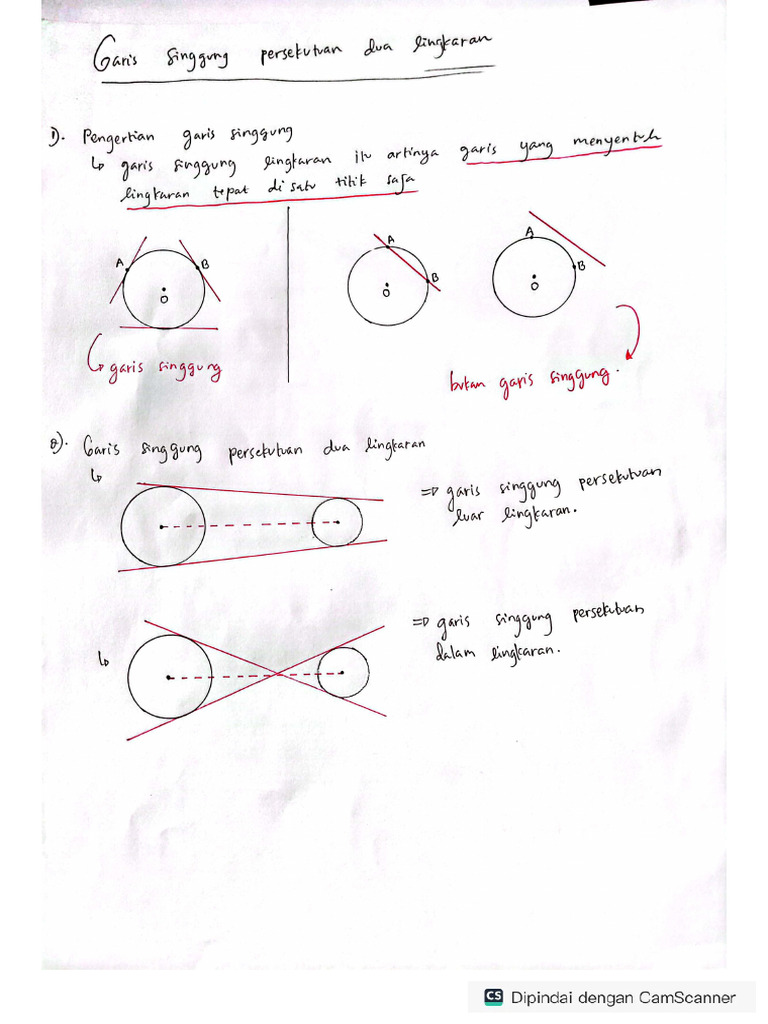 Garis singgung persekutuan dua lingkaran
1). Pengertian garis singgung
↳ garis singgung lingkaran itu artinya garis yang menyentuh
lingkaran tepat di satu titik saja
A B O
A B O
A B O
garis singgung
bukan garis singgung.
2). Garis singgung persekutuan dua lingkaran
↳ => garis singgung persekutuan
luar lingkaran.
↳ => garis singgung persekutuan
dalam lingkaran.
CS Dipindai dengan CamScanner